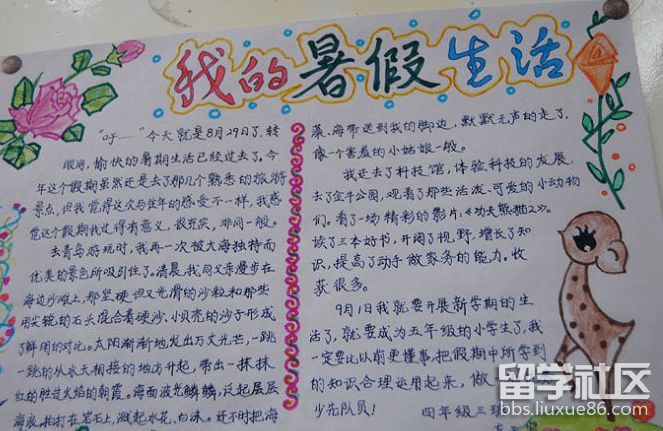 我的暑假生活
"吁……"今天就是8月29日了,转
眼间,愉快的暑期生活已经过去了。今
年这个假期虽然还是去了那几个熟悉的旅游
景点,但我觉得这次与往年的感受不一样,我感
觉这个假期我过得有意义,很充实,非同一般。
去青岛游玩时,我再一次被大海独特而
优美的景色所吸引住了。清晨,我同父亲漫步在
海边沙滩上,那坚硬但又光滑的沙粒和那些
用尖锐的石头混合着硬沙、小贝壳的沙子形成
了鲜明的对比。太阳渐渐地发出万丈光芒,一跳
一跳的从水天相接的地方开起,带出一抹抹
红的胜过火焰的朝霞。海面波光鳞鳞,泛起层层
海浪,拍打在岩石上,溅起水花、白沫。还不时把海
藻、海带送到我的脚边,默默无声的走了,
像一个害羞的小姑娘一般。
我还去了科技馆,体验科技的发展,
去了金牛公园,观看了那些活泼、可爱的小动物
们。看了一场精彩的影片,《功夫熊猫2》。
读了三本好书,开阔了视野,增长了知
识,提高了动手做家务的能力。收
获很多。
9月1日我就要开展新学期的生
活了,就要成为五年级的小学生了,我
一定要比以前更懂事,把假期中所学到
的知识合理运用起来,做
少先队员!
四年级三班
留学社区
bbs.liuxue86.com